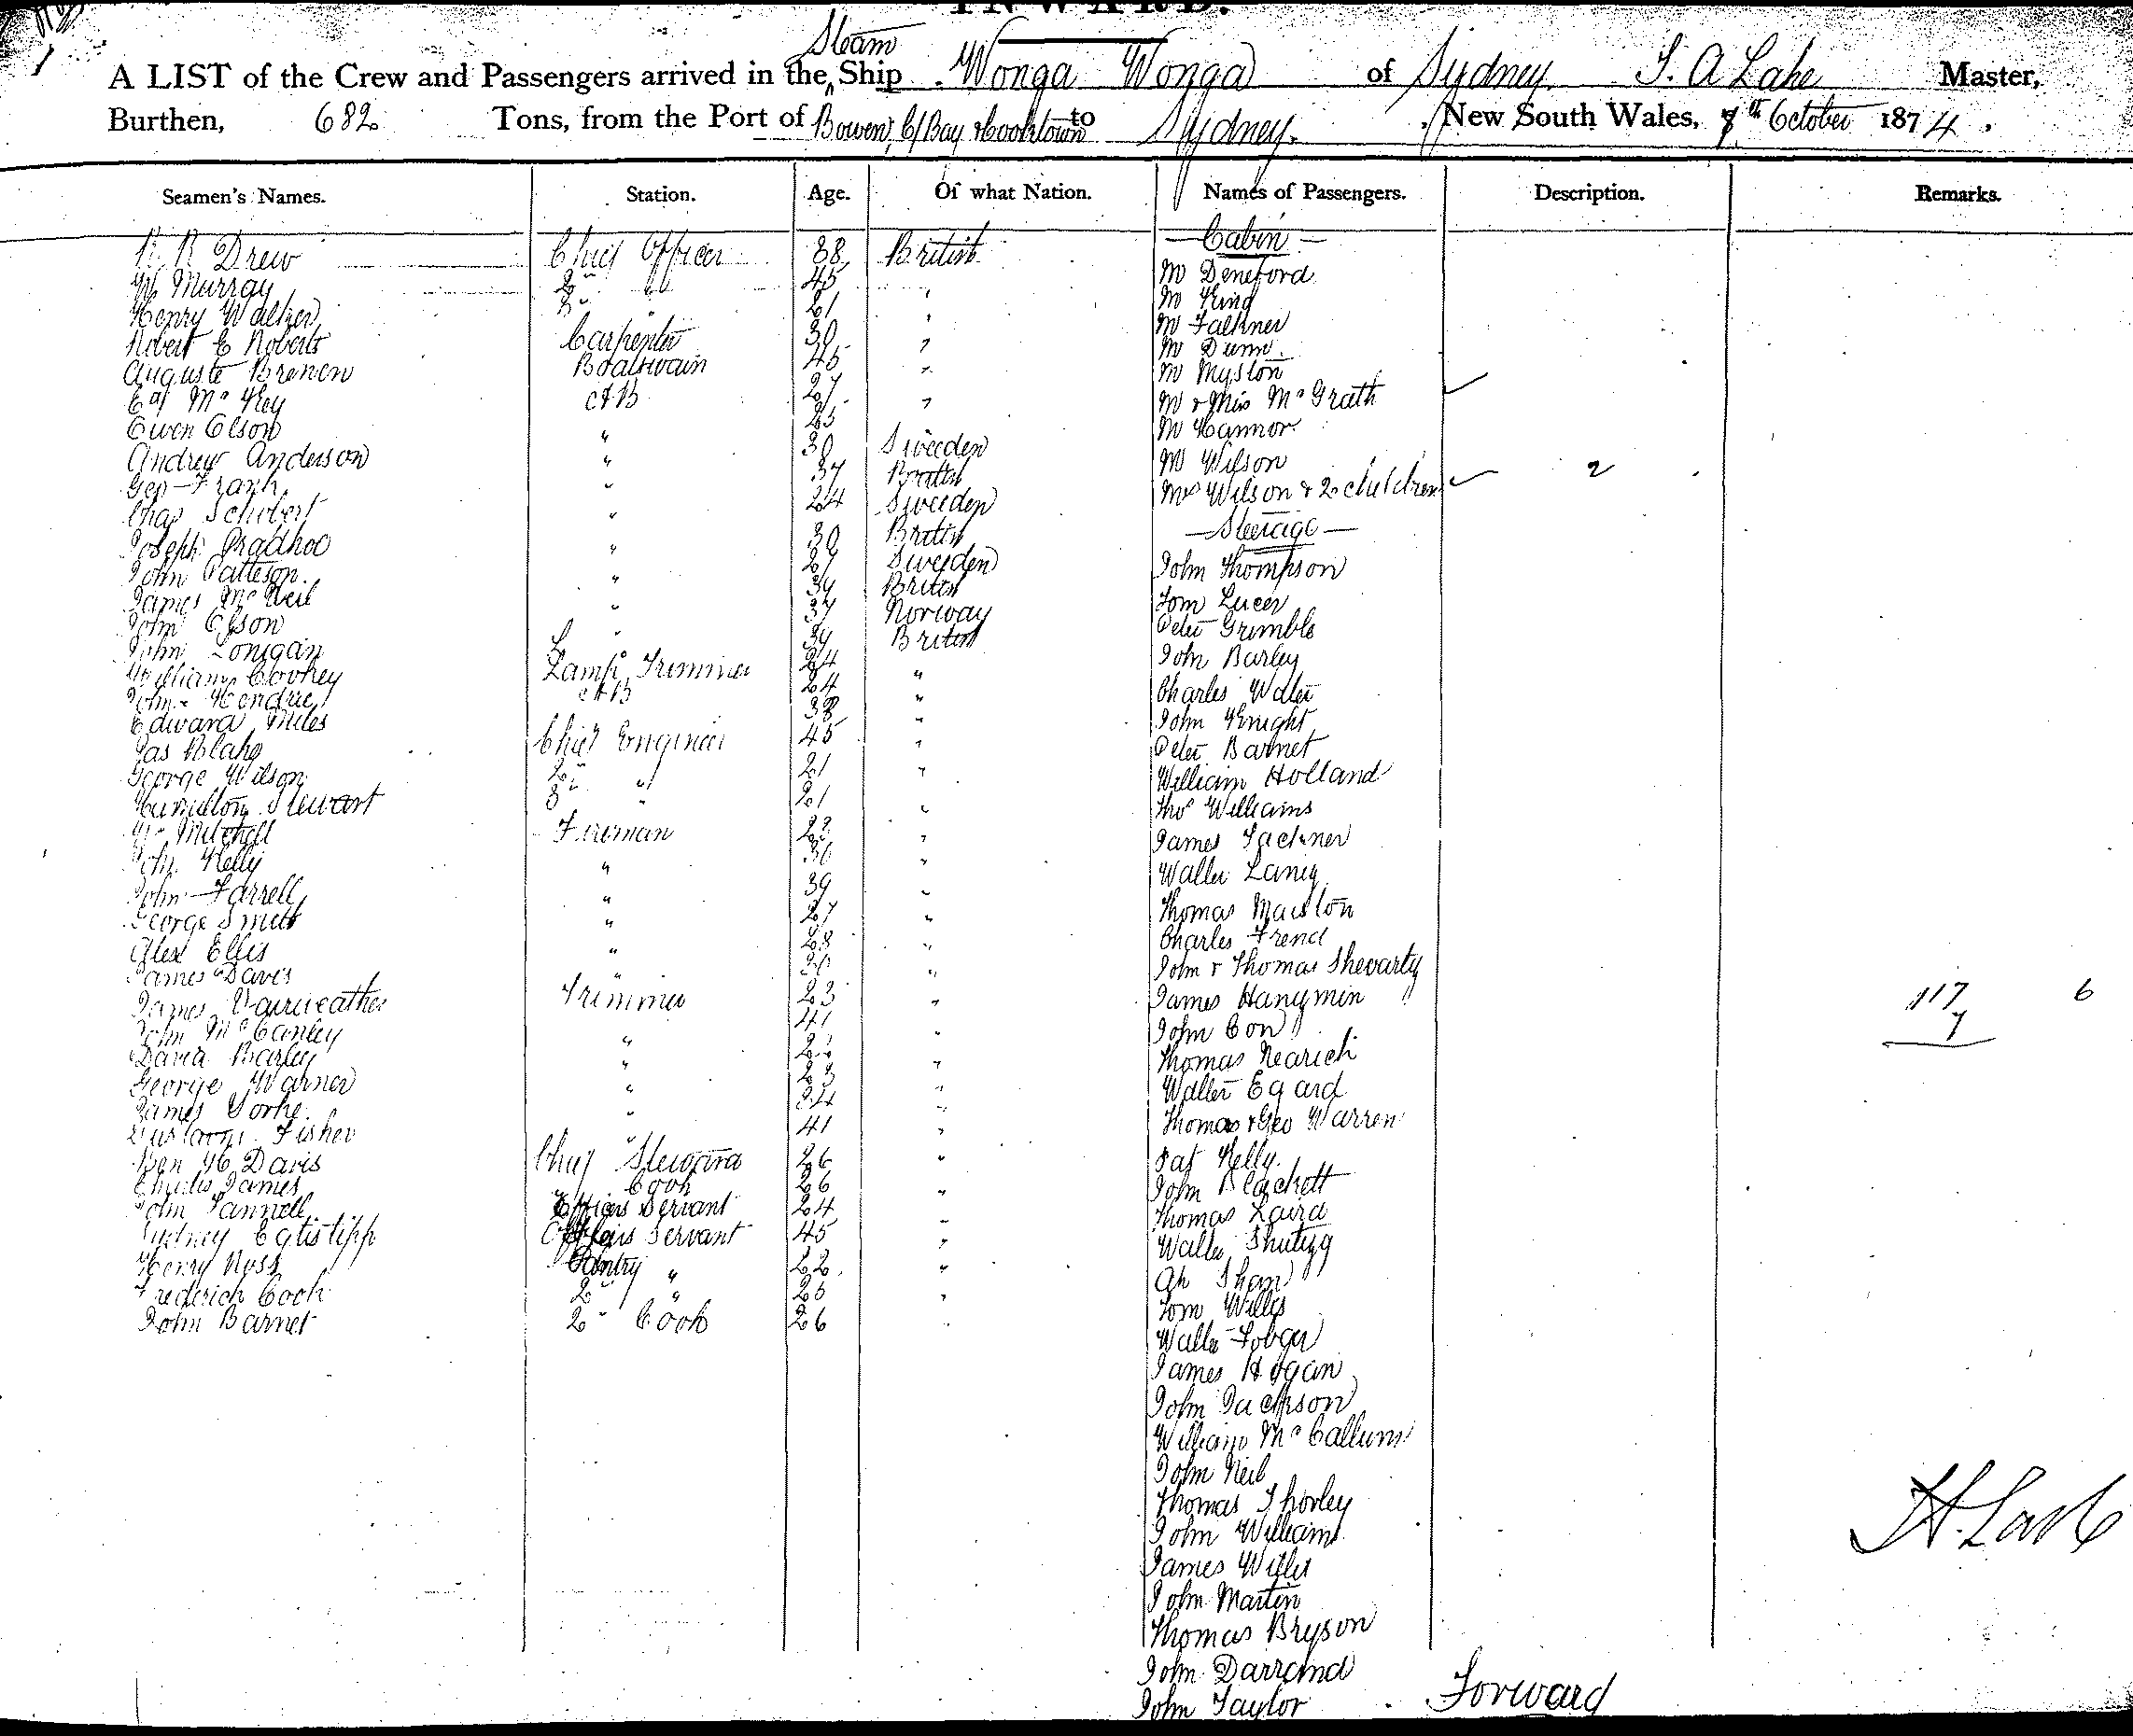 INWARD.
Steam
A LIST of the Crew and Passengers arrived in the Ship Wonga Wonga of Sydney, Master,
Burthen, 682 Tons, from the Port of Bowen, C/Bay & Cooktown to Sydney. New South Wales, 7th October 1874.
Seamen's Names. Station. Age. Of what Nation. Names of Passengers. Description. Remarks.
Cabin
Drew Chief Officer 38 British
Murray 2nd 45
Henry Walker 3 21
Robert E Roberts Carpenter 30
Auguste Brenen Boatswain 45
AB 27
Owen Olson "
Andrew Anderson " 30 Sweeden
Geo Frank " 37 British
Chas Schubert " 24 Sweeden
Joseph " 30 British
John Patteson " 27 Sweeden
James McNeil " British
John Olson " 37 Norway
John Lonigan " British
William Lamp Trimmer 24 "
John Hendrie AB 24 "
Edward Miles 38 "
Jas Blake Chief Engineer 45 "
George Wilson 2nd " 21 "
Hamilton Stewart 3rd " 21 "
Wm Mitchell Fireman "
John Kelly " "
John Farrell " 39 "
George Smith " 27 "
Alex Ellis " "
James Davis " "
James Fairweather Trimmer 23 "
John McCanley 41 "
David Barley " "
George Warner " 23 "
James Yorke " "
Fisher " 41 "
Ben H Davis Chief Steward 26 "
Charles James Cook 26 "
John Fannell Officers Servant 24 "
Sydney Servant 45 "
Henry Ross Pantry " 22 "
Frederick Cook 2nd " "
John Barnet 2nd Cook 26
Mr Deneford
Mr King
Mr Falkner
Mr Dunn
Mr Myston
Mr & Miss McGrath
Mr Hannor
Mr Wilson
Mrs Wilson & 2 children 2
Steerage
John Thompson
Tom Lucer
Peter Grimble
John Barley
Charles Water
John Knight
Peter Barnet
William Holland
Thos Williams
James Fackner
Walter Laney
Thomas Marston
Charles Frend
John & Thomas Shevarty
James Hanymin 117 6
John Con 7
Thomas Nearich
Walter Egard
Thomas & Geo Warren
Pat Kelly
John Blackett
Thomas Laird
Walter
Ah Shan
Tom Willis
Walter
James Hogan
John Jackson
William McCallum
John Neil
Thomas Thorley
John Williams
James Willis
John Martin
Thomas Bryson
John Darrand
John Taylor Forward